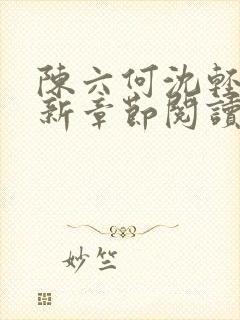 陳六何沈輕
新章節閱讀
妙竺